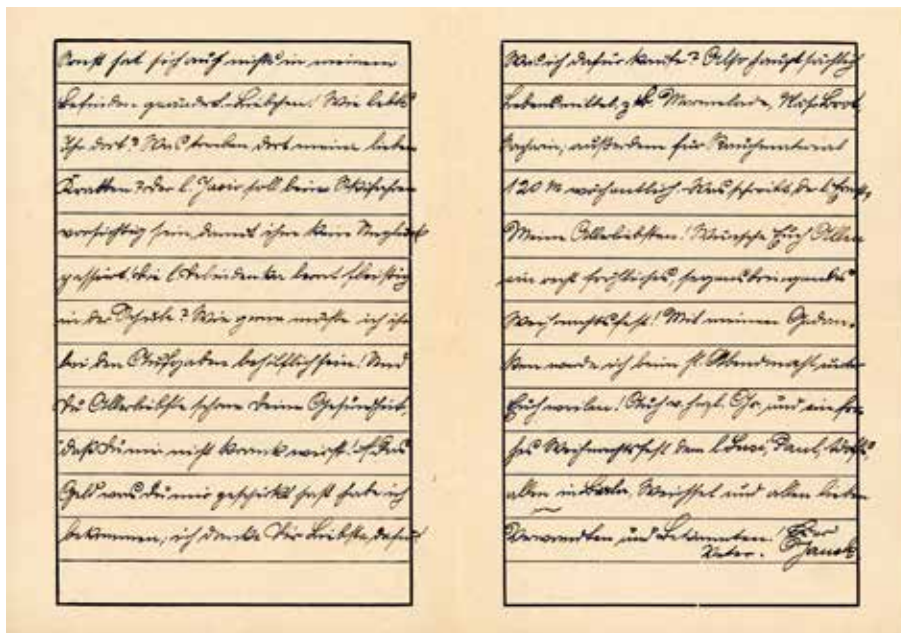 Sonst hat sich auf nichts in meinem
Befinden geändert. Liebchen! Wie lebts
Ihr dort? Was treiben dort meine lieben
Kratten? der l. soll beim Skifahren
vorsichtig sein, damit ihm kein Unglück
passiert. die lernt fleißig
in der Schule? Wie gerne möchte ich ihr
bei den Aufgaben behilflich sein! Und
Du Allerliebste schone Deine Gesundheit,
daß Du mir nicht krank wirst! Das
Geld was Du mir geschickt hast habe ich
bekommen, ich danke Dir Liebste, dafür!
Was ich dafür kaufe? Also hauptsächlich
Lebensmittel, z.B. Marmelade, Brot,
außerdem für Rauchmaterial
120 M wöchentlich. Was schreibt der l. Ernst,
Meine Allerliebsten! Wünsche Euch Allen
ein recht fröhliches, segenbringendes
Weihnachtsfest! Mit meinen Gedan-
ken werde ich beim hl. Abendmahl unter
Euch weilen! Auch w. herzl. Gr. und ein fro-
hes Weihnachtsfest dem l. Paul,
allen in Weichsel und allen lieben
Verwandten und Bekannten! Euer
Vater. Janek